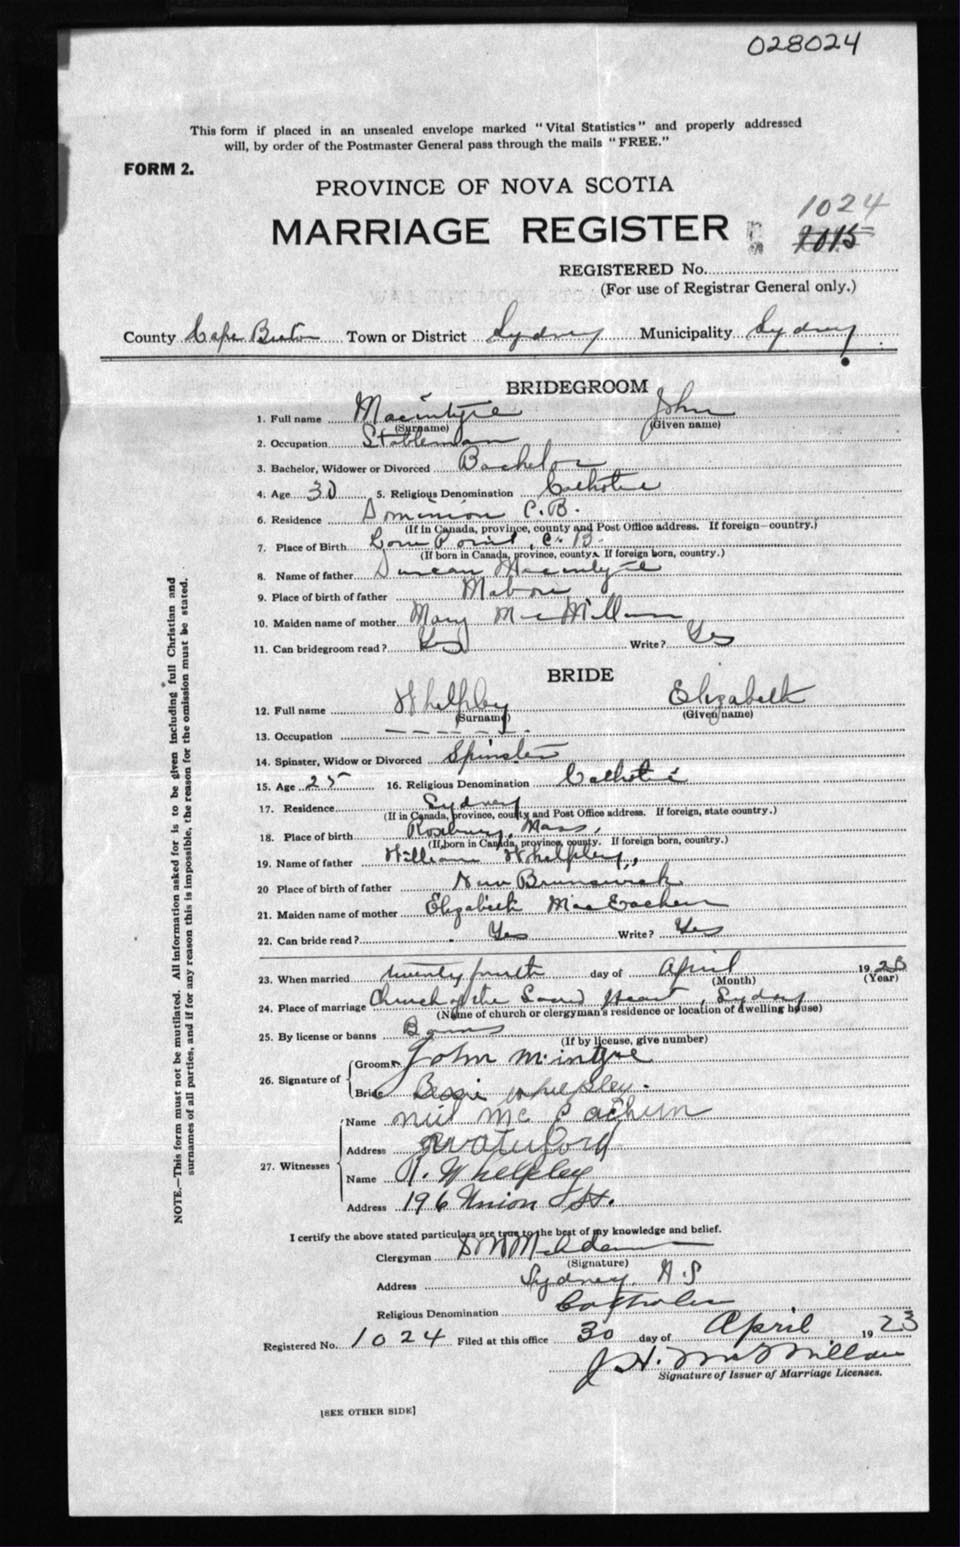 028024
This form if placed in an unsealed envelope marked "Vital Statistics" and properly addressed
will, by order of the Postmaster General pass through the mails "FREE."
FORM 2.
PROVINCE OF NOVA SCOTIA
1024
MARRIAGE REGISTER 2015
REGISTERED No.
(For use of Registrar General only.)
County Cape Breton Town or District Sydney Municipality Sydney
BRIDEGROOM
1. Full name Macintyre John
(Surname) (Given name)
2. Occupation Stableman
3. Bachelor, Widower or Divorced Bachelor
4. Age 30 5. Religious Denomination Catholic
6. Residence Dominion C.B.
(If in Canada, province, county and Post Office address. If foreign—country.)
7. Place of Birth Point, C.B.
(If born in Canada, province, county. If foreign born, country.)
8. Name of father Duncan Macintyre
9. Place of birth of father Mabou
10. Maiden name of mother Mary MacMillan
11. Can bridegroom read? Yes Write? Yes
BRIDE
12. Full name Whelpley Elizabeth
(Surname) (Given name)
13. Occupation – – – – – –
14. Spinster, Widow or Divorced Spinster
15. Age 25 16. Religious Denomination Catholic
17. Residence Sydney
(If in Canada, province, county and Post Office address. If foreign, state country.)
18. Place of birth Roxbury, Mass,
(If born in Canada, province, county. If foreign born, country.)
19. Name of father William Whelpley,
20 Place of birth of father New Brunswick
21. Maiden name of mother Elizabeth MacEachern
22. Can bride read? Yes Write? Yes
23. When married twenty fourth day of April 1923
(Month) (Year)
24. Place of marriage Church of the Sacred Heart, Sydney
(Name of church or clergyman's residence or location of dwelling house)
25. By license or banns Banns
(If by license, give number)
26. Signature of
Groom John McIntyre
Bride Bessie Whelpley.
27. Witnesses
Name Neil McEachern
Address Waterford
Name Whelpley
Address 196 Union St.
I certify the above stated particulars are true to the best of my knowledge and belief.
Clergyman
(Signature)
Address Sydney, N.S
Religious Denomination Catholic
Registered No. 1024 Filed at this office 30 day of April 1923
J.H. McMillan
Signature of Issuer of Marriage Licenses.
[SEE OTHER SIDE]
NOTE.—This form must not be mutilated. All information asked for is to be given including full Christian and
surnames of all parties, and if for any reason this is impossible, the reason for the omission must be stated.